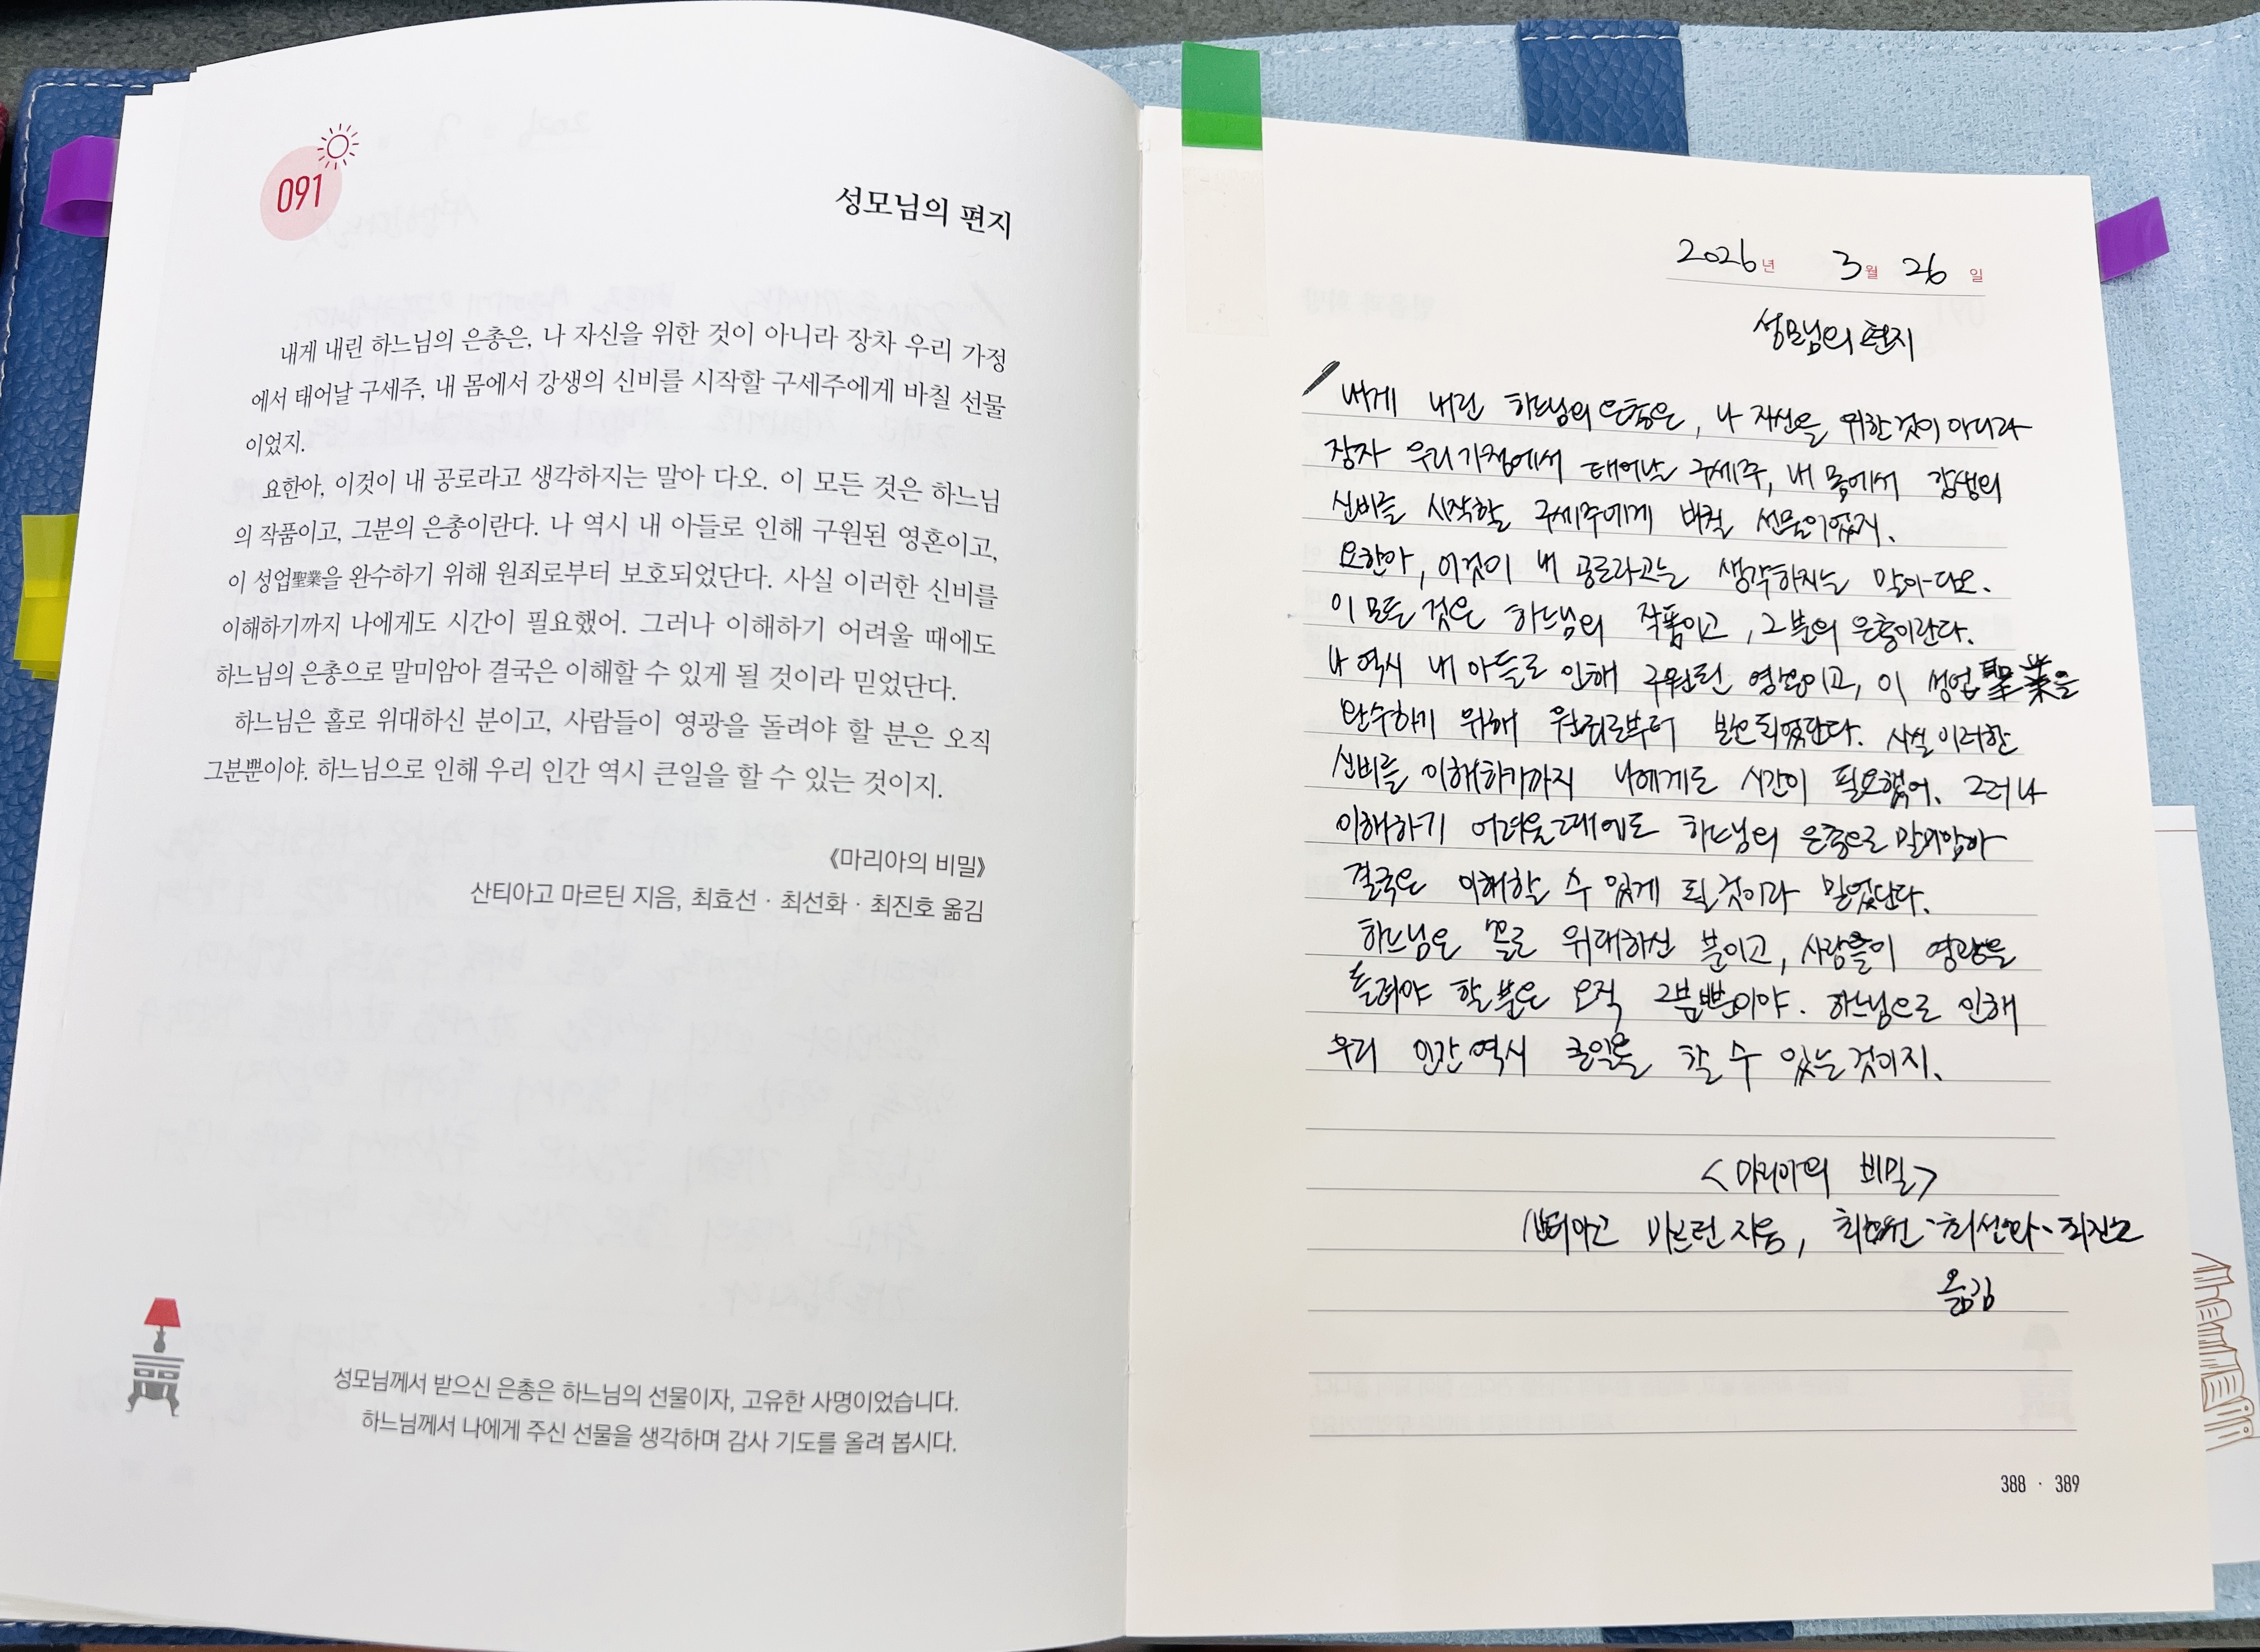 091
성모님의 편지
내게 내린 하느님의 은총은, 나 자신을 위한 것이 아니라 장차 우리 가정
에서 태어날 구세주, 내 몸에서 강생의 신비를 시작할 구세주에게 바칠 선물
이었지.
요한아, 이것이 내 공로라고 생각하지는 말아 다오. 이 모든 것은 하느님
의 작품이고, 그분의 은총이란다. 나 역시 내 아들로 인해 구원된 영혼이고,
이 성업聖業을 완수하기 위해 원죄로부터 보호되었단다. 사실 이러한 신비를
이해하기까지 나에게도 시간이 필요했어. 그러나 이해하기 어려울 때에도
하느님의 은총으로 말미암아 결국은 이해할 수 있게 될 것이라 믿었단다.
하느님은 홀로 위대하신 분이고, 사람들이 영광을 돌려야 할 분은 오직
그분뿐이야. 하느님으로 인해 우리 인간 역시 큰일을 할 수 있는 것이지.
《마리아의 비밀》
산티아고 마르틴 지음, 최효선 · 최선화 · 최진호 옮김
성모님께서 받으신 은총은 하느님의 선물이자, 고유한 사명이었습니다.
하느님께서 나에게 주신 선물을 생각하며 감사 기도를 올려 봅시다.
2026년 3월 26일
성모님의 편지
내게 내린 하느님의 은총은, 나 자신을 위한 것이 아니라
장차 우리 가정에서 태어날 구세주, 내 몸에서 강생의
신비를 시작할 구세주에게 바칠 선물이었지.
요한아, 이것이 내 공로라고는 생각하지는 말아 다오.
이 모든 것은 하느님의 작품이고, 그분의 은총이란다.
나 역시 내 아들로 인해 구원된 영혼이고, 이 성업聖業을
완수하기 위해 원죄로부터 보호되었단다. 사실 이러한
신비를 이해하기까지 나에게도 시간이 필요했어. 그러나
이해하기 어려울 때에도 하느님의 은총으로 말미암아
결국은 이해할 수 있게 될 것이라 믿었단다.
하느님은 홀로 위대하신 분이고, 사람들이 영광을
돌려야 할 분은 오직 그분뿐이야. 하느님으로 인해
우리 인간 역시 큰일을 할 수 있는 것이지.
<마리아의 비밀>
산티아고 마르틴 지음, 최효선·최선화·최진호
옮김
388 · 389